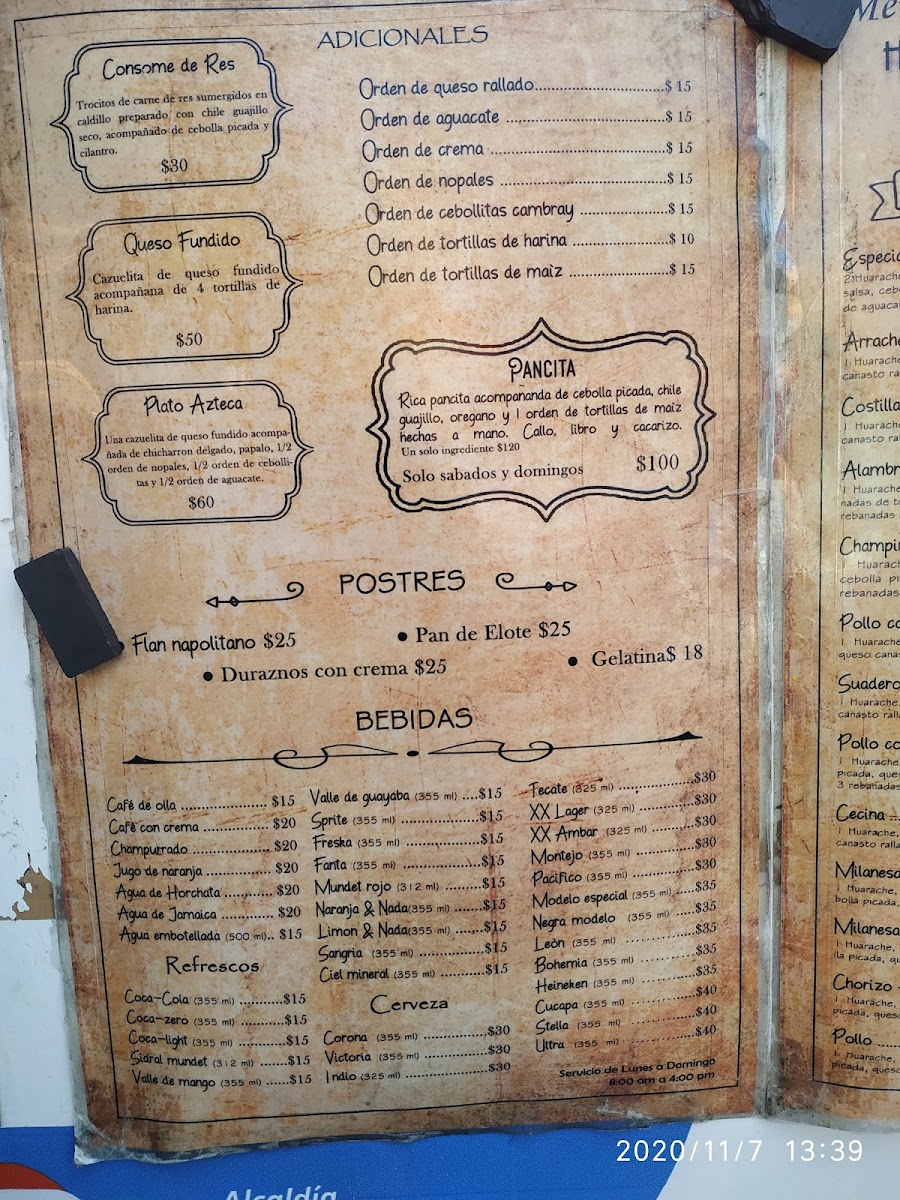 ADICIONALES
Consome de Res
Trocitos de carne de res sumergidos en
caldillo preparado con chile guajillo
seco, acompañado de cebolla picada y
cilantro.
$30
Queso Fundido
Cazuelita de queso fundido
acompañana de 4 tortillas de
harina.
$50
Plato Azteca
Una cazuelita de queso fundido acompa-
ñada de chicharron delgado, papalo, 1/2
orden de nopales, 1/2 orden de cebolli-
tas y 1/2 orden de aguacate.
$60
Orden de queso rallado..............................$ 15
Orden de aguacate ....................................$ 15
Orden de crema ........................................$ 15
Orden de nopales ......................................$ 15
Orden de cebollitas cambray ....................$ 15
Orden de tortillas de harina ......................$ 10
Orden de tortillas de maiz ........................$ 15
PANCITA
Rica pancita acompañanda de cebolla picada, chile
guajillo, oregano y 1 orden de tortillas de maiz
hechas a mano. Callo, libro y cacarizo.
Un solo ingrediente $120
Solo sabados y domingos $100
POSTRES
Flan napolitano $25
• Pan de Elote $25
• Duraznos con crema $25
• Gelatina$ 18
BEBIDAS
Café de olla ..................... $15
Café con crema ................ $20
Champurrado .................... $20
Jugo de naranja ................ $20
Agua de Horchata ............ $20
Agua de Jamaica ............. $20
Agua embotellada (500 ml).. $15
Refrescos
Coca-Cola (355 ml) ...........$15
Coca-zero (355 ml) ...........$15
Coca-light (355 ml) ...........$15
Sidral mundet (312 ml) .......$15
Valle de mango (355 ml) ......$15
Valle de guayaba (355 ml) ....$15
Sprite (355 ml) ....................$15
Freska (355 ml) ...................$15
Fanta (355 ml) ....................$15
Mundet rojo (312 ml) ...........$15
Naranja & Nada(355 ml) .......$15
Limon & Nada(355 ml) .........$15
Sangria (355 ml) .................$15
Ciel mineral (355 ml) ...........$15
Cerveza
Corona (355 ml) .................$30
Victoria (355 ml) ................$30
Indio (325 ml) ....................$30
Tecate (325 ml) ..................$30
XX Lager (325 ml) ...............$30
XX Ambar (325 ml) .............$30
Montejo (355 ml) ................$30
Pacifico (355 ml) ................$30
Modelo especial (355 ml) ......$35
Negra modelo (355 ml) .....$35
Leòn (355 ml) ..................$35
Bohemia (355 ml) ...............$35
Heineken (355 ml) ..............$35
Cucapa (355 ml) ................$40
Stella (355 ml) ..................$40
Ultra (355 ml) ...................$40
Servicio de Lunes a Domingo
8:00 am a 4:00 pm
Me
H
Especia
2 Huarache
salsa, ceb
de aguaca
Arrache
1 Huarache
canasto ra
Costilla
1 Huarache
canasto ra
Alambr
1 Huarache
nadas de to
rebanadas
Champi
1 Huarac
cebolla pi
rebanadas
Pollo co
1 Huarache
queso cana
Suadero
1 Huarache,
canasto rall
Pollo co
1 Huarache
picada, que
3 rebanadas
Cecina ..
1 Huarache,
canasto ralla
Milanesa
1 Huarache,
bolla picada,
Milanesa
1 Huarache,
lla picada, qu
Chorizo
1 Huarache,
picada, queso
Pollo .....
1 Huarache,
picada, queso
Alcaldía
2020/11/7 13:39